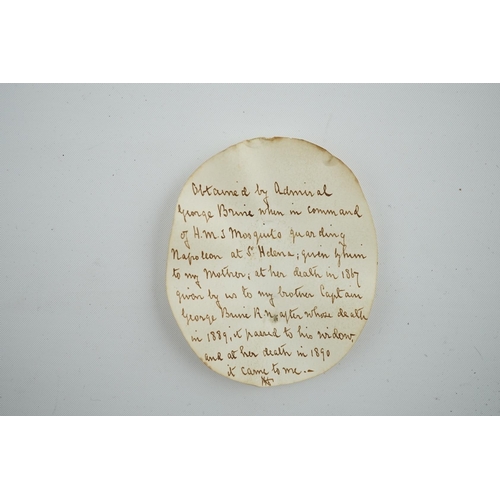 Obtained by Admiral
George Brine when in command
of H.M.S Mosquito guarding
Napoleon at St Helena; given by him
to my Mother; at her death in 1867
given by us to my brother Captain
George Brine R.N. after whose death
in 1889, it passed to his widow,
and at her death in 1890
it came to me. —